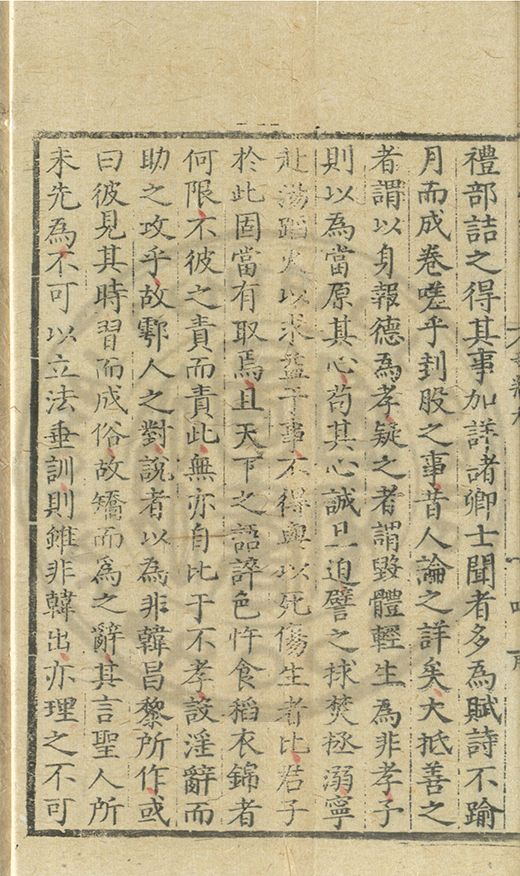 禮部詰之得其事加詳諸卿士聞者多為賦詩不踰
月而成卷嗟乎刲股之事昔人論之詳矣大抵善之
者謂以身報德為孝疑之者謂毀體輕生為非孝予
則以為當原其心苟其心誠且迫譬之捄焚拯溺寧
赴湯蹈火以求益于事不得與以死傷生者比君子
於此固當有取焉且天下之語誶色忤食稻衣錦者
何限不彼之責而責此無亦自比于不孝設淫辭而
助之攻乎故鄠人之對說者以為非韓昌黎所作或
曰彼見其時習而成俗故矯而為之辭其言聖人所
未先為不可以立法垂訓則雖非韓出亦理之不可